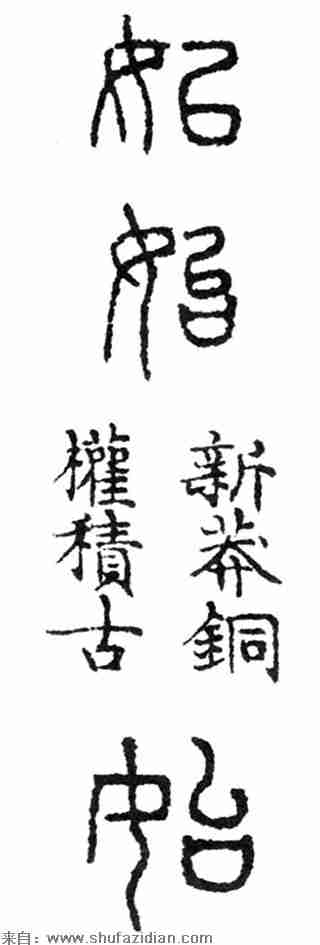 始
始
新莽銅
權積古
始
来自:www.shufazidian.com